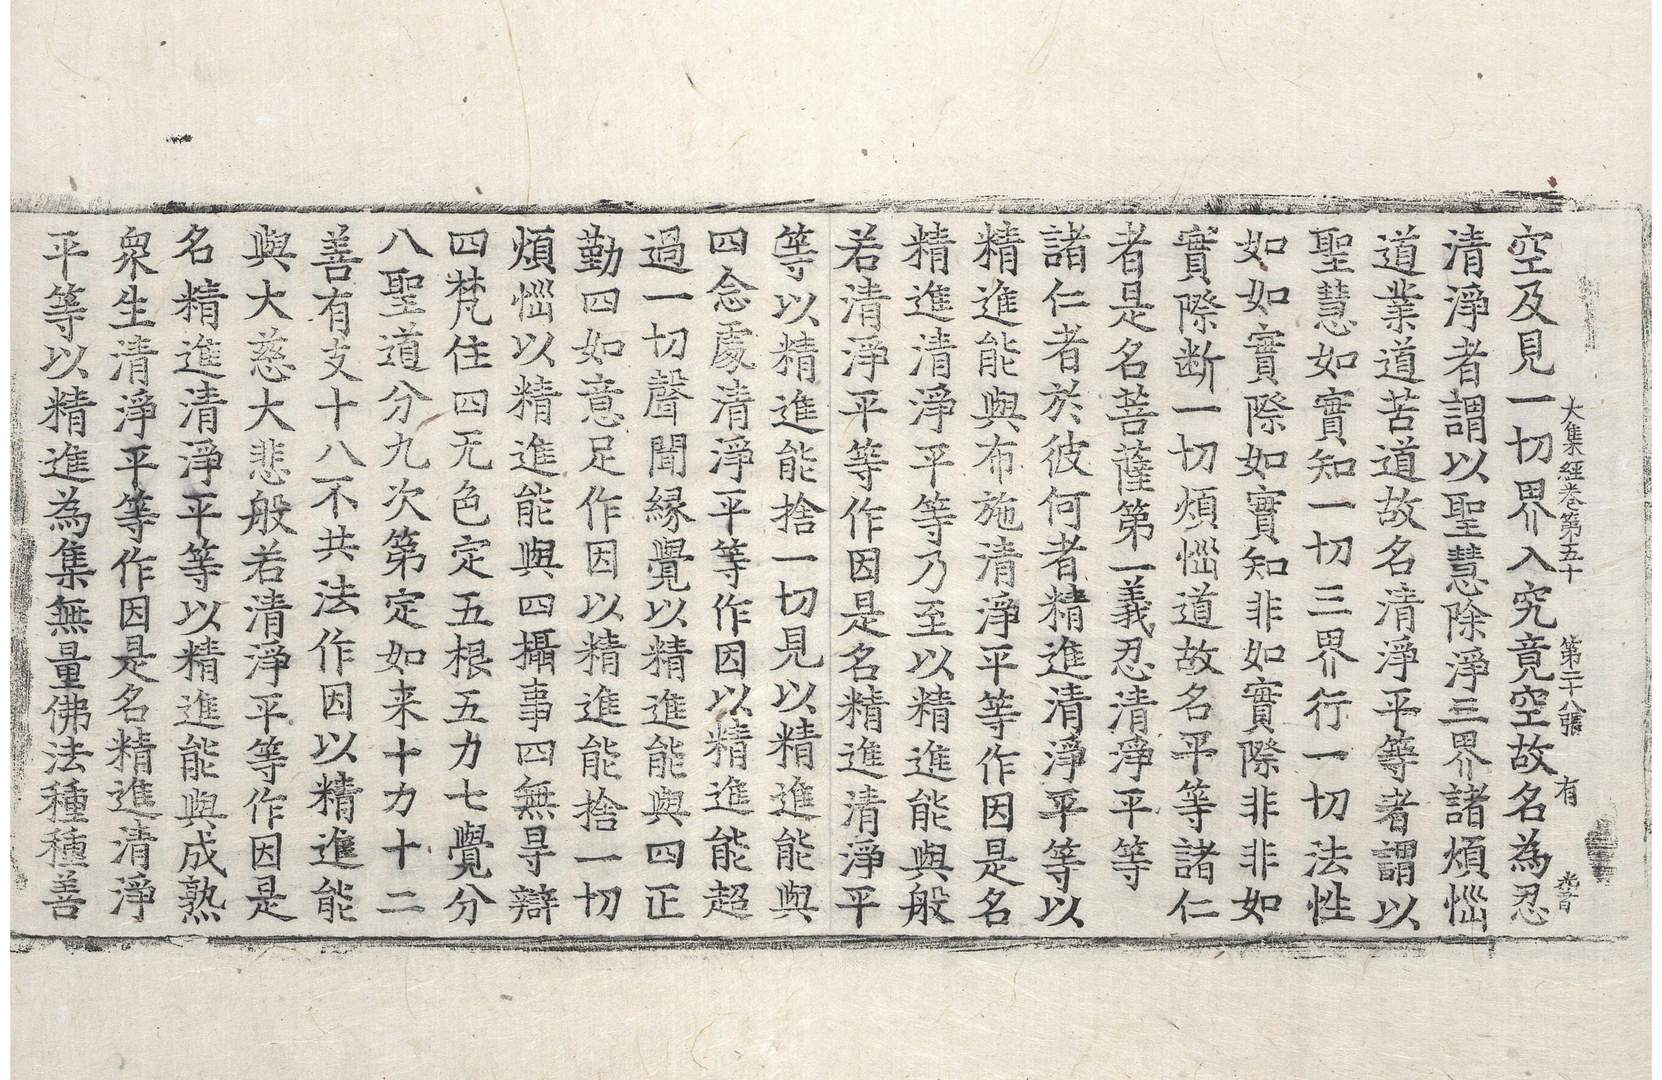 大集経巻第五十　第二十八張　有
空及見一切界入究竟空故名為忍
清淨者謂以聖慧除淨三界諸煩惱
道業道苦道故名清淨平等者謂以
聖慧如實知一切三界行一切法性
如如實際如實知非如實際非非如
實際断一切煩惱道故名平等諸仁
者是名菩薩第一義忍清淨平等
諸仁者於彼何者精進清淨平等以
精進能與布施清淨平等作因是名
精進清淨平等乃至以精進能與般
若清淨平等作因是名精進清淨平
等以精進能捨一切見以精進能與
四念處清淨平等作因以精進能超
過一切聲聞縁覺以精進能與四正
勤四如意足作因以精進能捨一切
煩惱以精進能與四攝事四無㝵辯
四梵住四无色定五根五力七覺分
八聖道分九次第定如来十力十二
善有支十八不共法作因以精進能
與大慈大悲般若清淨平等作因是
名精進清淨平等以精進能與成熟
衆生清淨平等作因是名精進清淨
平等以精進為集無量佛法種種善